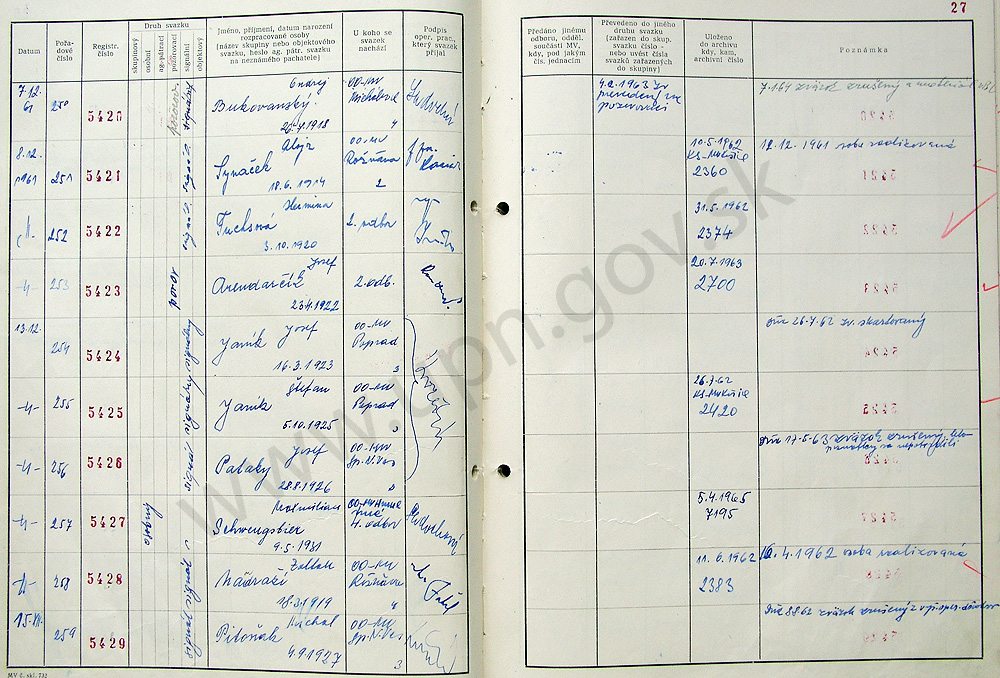 27
Datum
Pořa-
dové
číslo
Registr.
číslo
Druh svazku
skupinový
osobní
ag-pátrací
pozorovací
signální
objektový
Jméno, příjmení, datum narození
rozpracované osoby
(název skupiny nebo objektového
svazku, heslo ag. pátr. svazku
na neznámého pachatele)
U koho se
svazek
nachází
Podpis
oper. prac.,
který svazek
přijal
Předáno jinému
odboru, odděl.
součásti MV,
kdy, pod jakým
čís. jednacím
Převedeno do jiného
druhu svazku
(zařazen do skup.
svazku číslo -
nebo uvést čísla
svazků zařazených
do skupiny)
Uloženo
do archivu
kdy, kam,
archivní číslo
Poznámka
7.12.
61
250
5420
signálny
Ondrej
Bukovanský
1918
00-MV
Michalovce
4
4.2.1963 zv.
prevedený na
pozorovací
7.1.64 zväzok zrušený a
8.12.
1961
251
5421
Alojz
Synáček
18.6.1914
00-MV
Rožňava
2
10.5.1962
KS-Mukišie
2360
12.12.1961 osoba realizovaná
252
5422
Hermina
Fuchsová
3.10.1920
2. odbor
31.5.1962
2374
-"-
253
5423
pozor.
Josef
Arendarčík
23.4.1922
2. odb.
20.7.1963
2700
13.12.
254
5424
signálny
Josef
Janík
16.3.1923
00-MV
Poprad
3
dňa 26.7.62 zv. skartovaný
-"-
255
5425
signálny
Štefan
Janík
5.10.1925
00-MV
Poprad
3
26.7.62
KS-Mukišie
2420
-"-
256
5426
signálny
Josef
Pataky
28.8.1926
00-MV
Sp.N.Ves
3
dňa 17-5-63 zväzok zrušený, lebo
poznatky sa nepotvrdili
-"-
257
5427
osobný
Maxmilian
Schwengsbier
9.5.1931
4. odbor
5.4.1965
7195
-"-
258
5428
Zoltán
Nádraží
18.3.1919
00-MV
Rožňava
4
11.6.1962
2383
16.4.1962 osoba realizovaná
15.XII.
259
5429
signálny
Michal
Pitoňák
4.9.1927
00-MV
Sp.N.Ves
3
Dňa 8.8.62 zväzok zrušený
MV č. skl. 732
www.upn.gov.sk